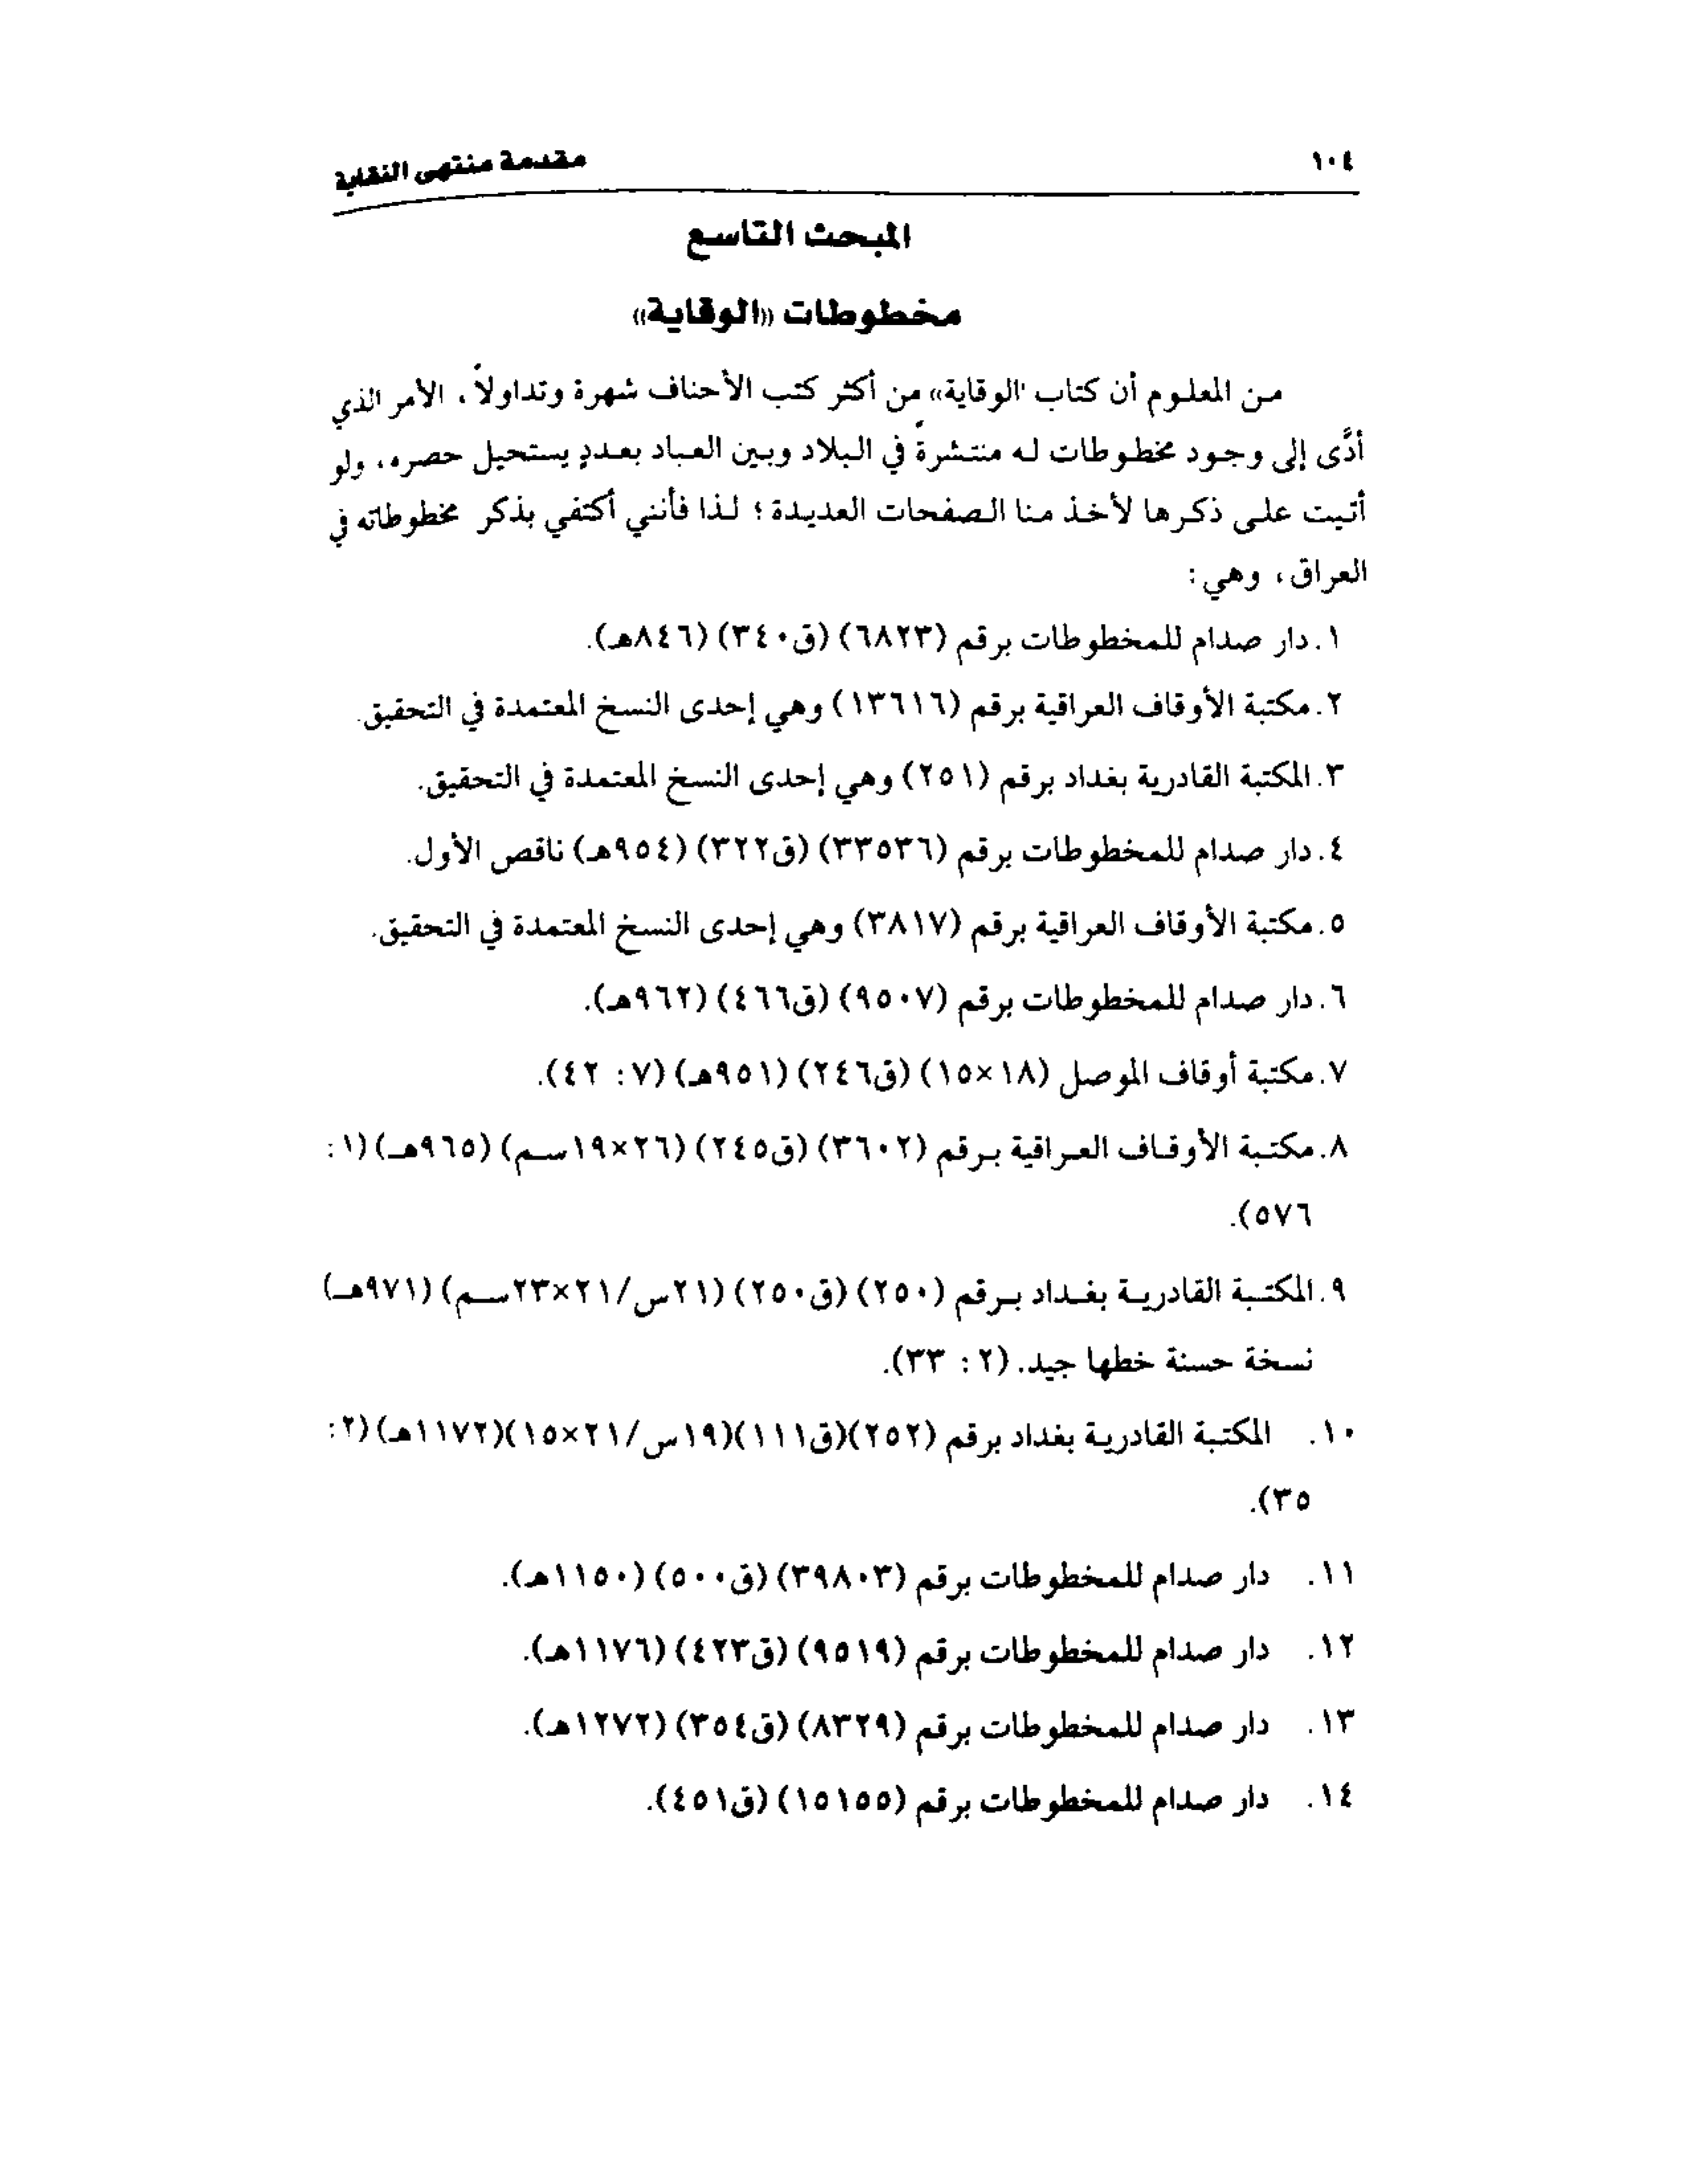 ١٠٤ مقدمة منتهى النقاية
المبحث التاسع
مخطوطات «الوقاية»
من المعلوم أن كتاب «الوقاية» من أكثر كتب الأحناف شهرة وتداولاً، الأمر الذي
أدَّى إلى وجود مخطوطات له منتشرةً في البلاد وبين العباد بعددٍ يستحيل حصره، ولو
أتيت على ذكرها لأخذ منا الصفحات العديدة؛ لذا فأنني أكتفي بذكر مخطوطاته في
العراق، وهي:
١. دار صدام للمخطوطات برقم (٦٨٢٣) (ق٣٤٠) (٨٤٦هـ).
٢. مكتبة الأوقاف العراقية برقم (١٣٦١٦) وهي إحدى النسخ المعتمدة في التحقيق.
٣. المكتبة القادرية بغداد برقم (٢٥١) وهي إحدى النسخ المعتمدة في التحقيق.
٤. دار صدام للمخطوطات برقم (٣٣٥٣٦) (ق٣٢٢) (٩٥٤هـ) ناقص الأول.
٥. مكتبة الأوقاف العراقية برقم (٣٨١٧) وهي إحدى النسخ المعتمدة في التحقيق.
٦. دار صدام للمخطوطات برقم (٩٥٠٧) (ق٤٦٦) (٩٦٢هـ).
٧. مكتبة أوقاف الموصل (١٨×١٥) (ق٢٤٦) (٩٥١هـ) (٧: ٤٢).
٨. مكتبة الأوقاف العراقية برقم (٣٦٠٢) (ق٢٤٥) (٢٦×١٩سم) (٩٦٥هـ) (١:
٥٧٦).
٩. المكتبة القادرية بغداد برقم (٢٥٠) (ق٢٥٠) (٢١س/٢١×٢٣سم) (٩٧١هـ)
نسخة حسنة خطها جيد. (٢: ٣٣).
١٠. المكتبة القادرية بغداد برقم (٢٥٢)(ق١١١)(١٩س/٢١×١٥)(١١٧٢هـ) (٢:
٣٥).
١١. دار صدام للمخطوطات برقم (٣٩٨٠٣) (ق٥٠٠) (١١٥٠هـ).
١٢. دار صدام للمخطوطات برقم (٩٥١٩) (ق٤٢٣) (١١٧٦هـ).
١٣. دار صدام للمخطوطات برقم (٨٣٢٩) (ق٣٥٤) (١٢٧٢هـ).
١٤. دار صدام للمخطوطات برقم (١٥١٥٥) (ق٤٥١).